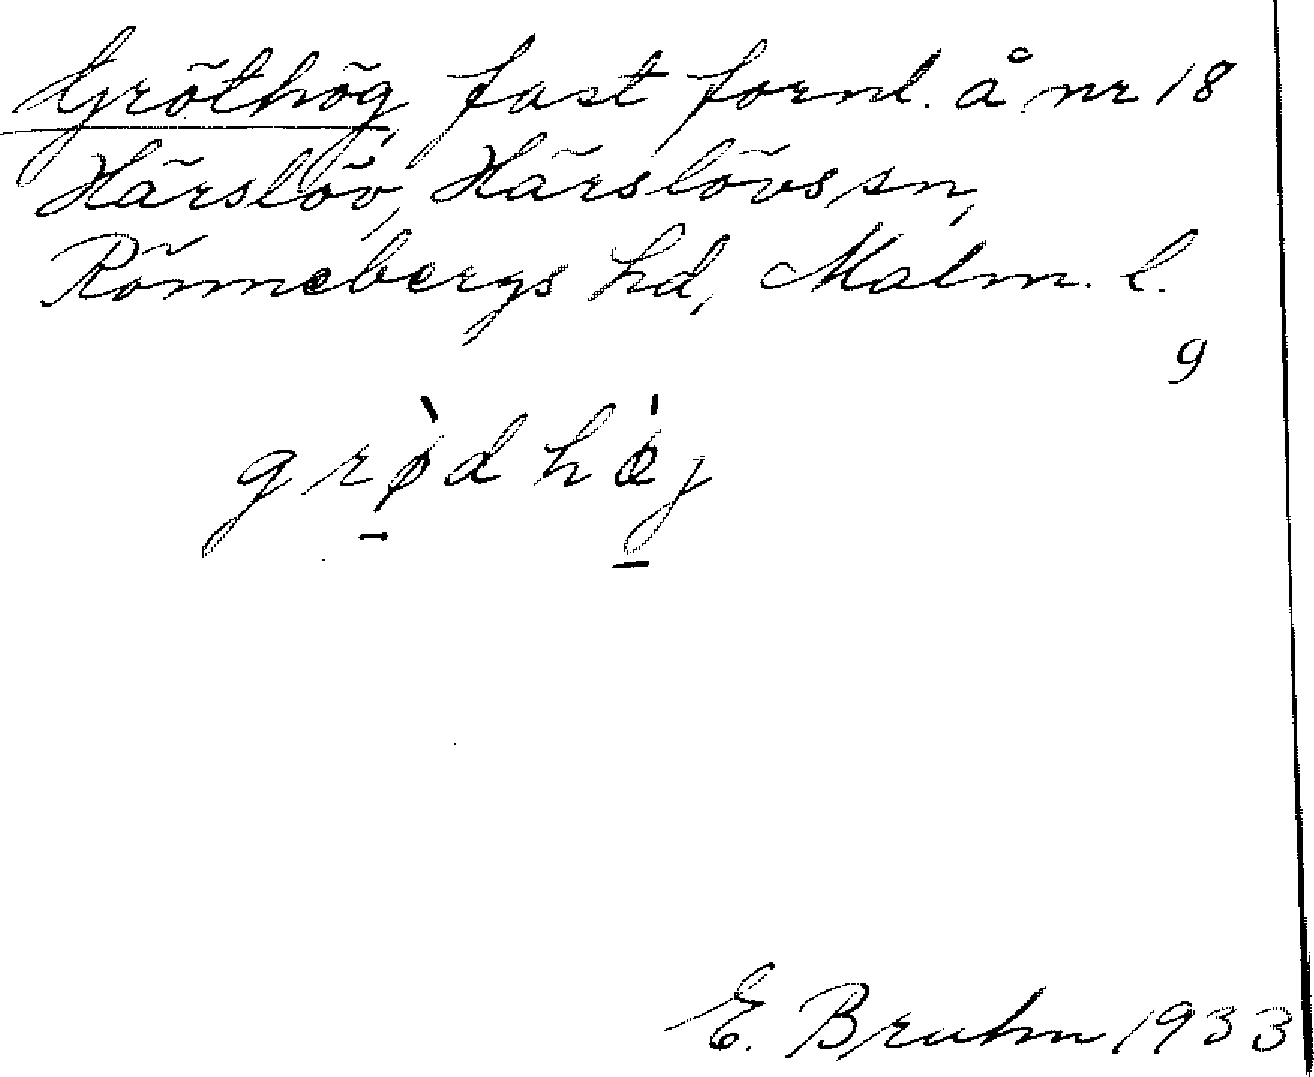 Gröthög, fast fornl. å nr 18
Härslöv, Härslövs sn,
Rönnebergs hd, Malm. l.
9
grø̀d hǿj
E. Bruhn 1933